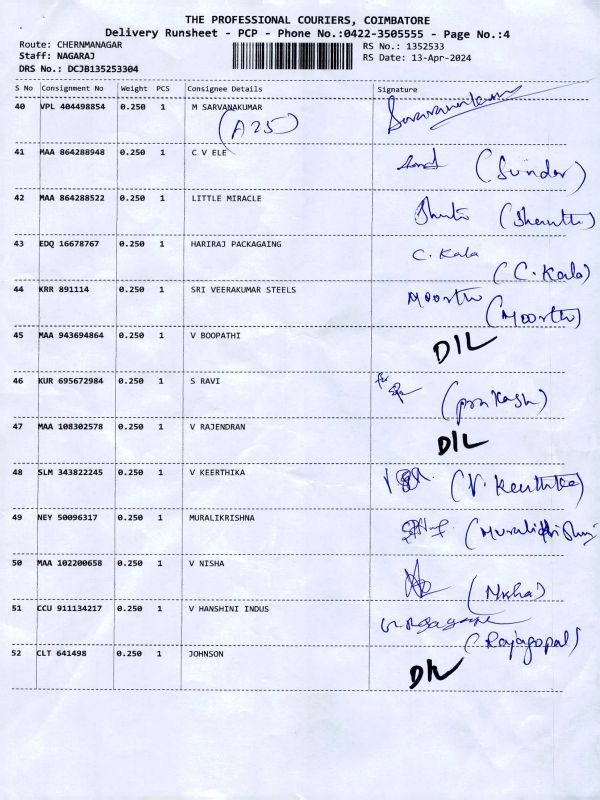 THE PROFESSIONAL COURIERS, COIMBATORE
Delivery Runsheet - PCP - Phone No.:0422-3505555 - Page No.:4
Route: CHERNMANAGAR RS No.: 1352533
Staff: NAGARAJ RS Date: 13-Apr-2024
DRS No.: DCJB135253304
S No Consignment No Weight PCS Consignee Details Signature
40 VPL 404498854 0.250 1 M SARVANAKUMAR
(A25)
41 MAA 864288948 0.250 1 C V ELE
(Sundar)
42 MAA 864288522 0.250 1 LITTLE MIRACLE
(Shanthi)
43 EDQ 16678767 0.250 1 HARIRAJ PACKAGAING C. Kala
(C. Kala)
44 KRR 891114 0.250 1 SRI VEERAKUMAR STEELS Moorthi
(Moorthi)
45 MAA 943694864 0.250 1 V BOOPATHI
D/L
46 KUR 695672984 0.250 1 S RAVI for
(prakash)
47 MAA 108302578 0.250 1 V RAJENDRAN
D/L
48 SLM 343822245 0.250 1 V KEERTHIKA
(V. Keerthika)
49 NEY 50096317 0.250 1 MURALIKRISHNA
50 MAA 102200658 0.250 1 V NISHA
(Nisha)
51 CCU 911134217 0.250 1 V HANSHINI INDUS
(Rajagopal)
52 CLT 641498 0.250 1 JOHNSON
D/L